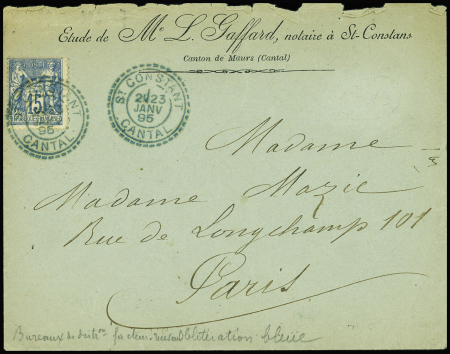 Etude de Me L. Gaffard, notaire à St-Constans
Canton de Maurs (Cantal)
15
95
CANTAL
St CONSTANT
2E 23
JANV
95
CANTAL
Madame
Madame Mazic
Rue de Longchamp 101
Paris
Bureaux de distr. facteur oblitération bleue